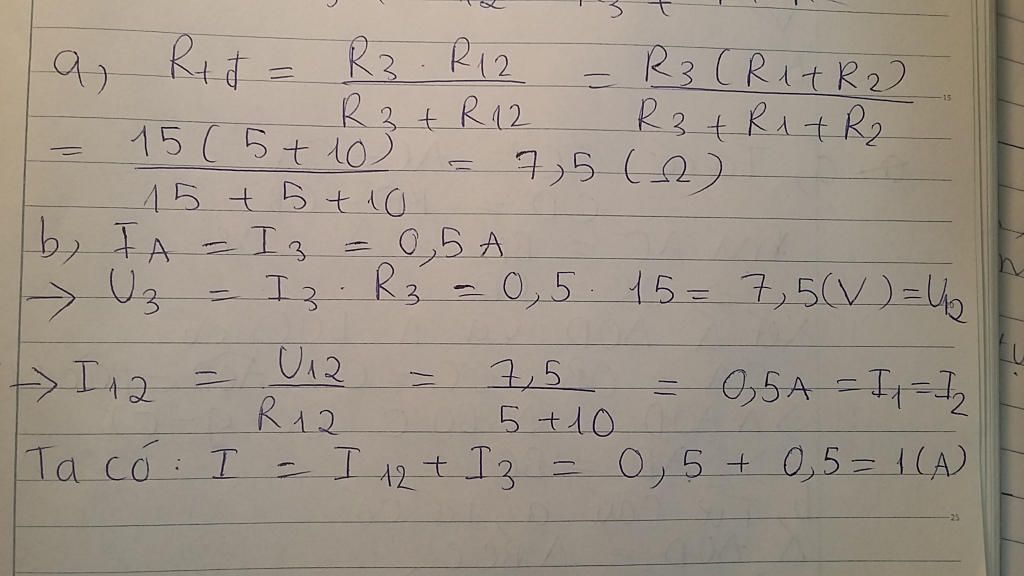 a, Rtđ = R3 . R12 / R3 + R12 = R3 (R1 + R2) / R3 + R1 + R2
= 15 ( 5 + 10) / 15 + 5 + 10 = 7,5 (Ω)
b, IA = I3 = 0,5 A
→ U3 = I3 . R3 = 0,5 . 15 = 7,5(V) = U12
→ I12 = U12 / R12 = 7,5 / 5 + 10 = 0,5A = I1 = I2
Ta có : I = I12 + I3 = 0,5 + 0,5 = 1(A)
15
25